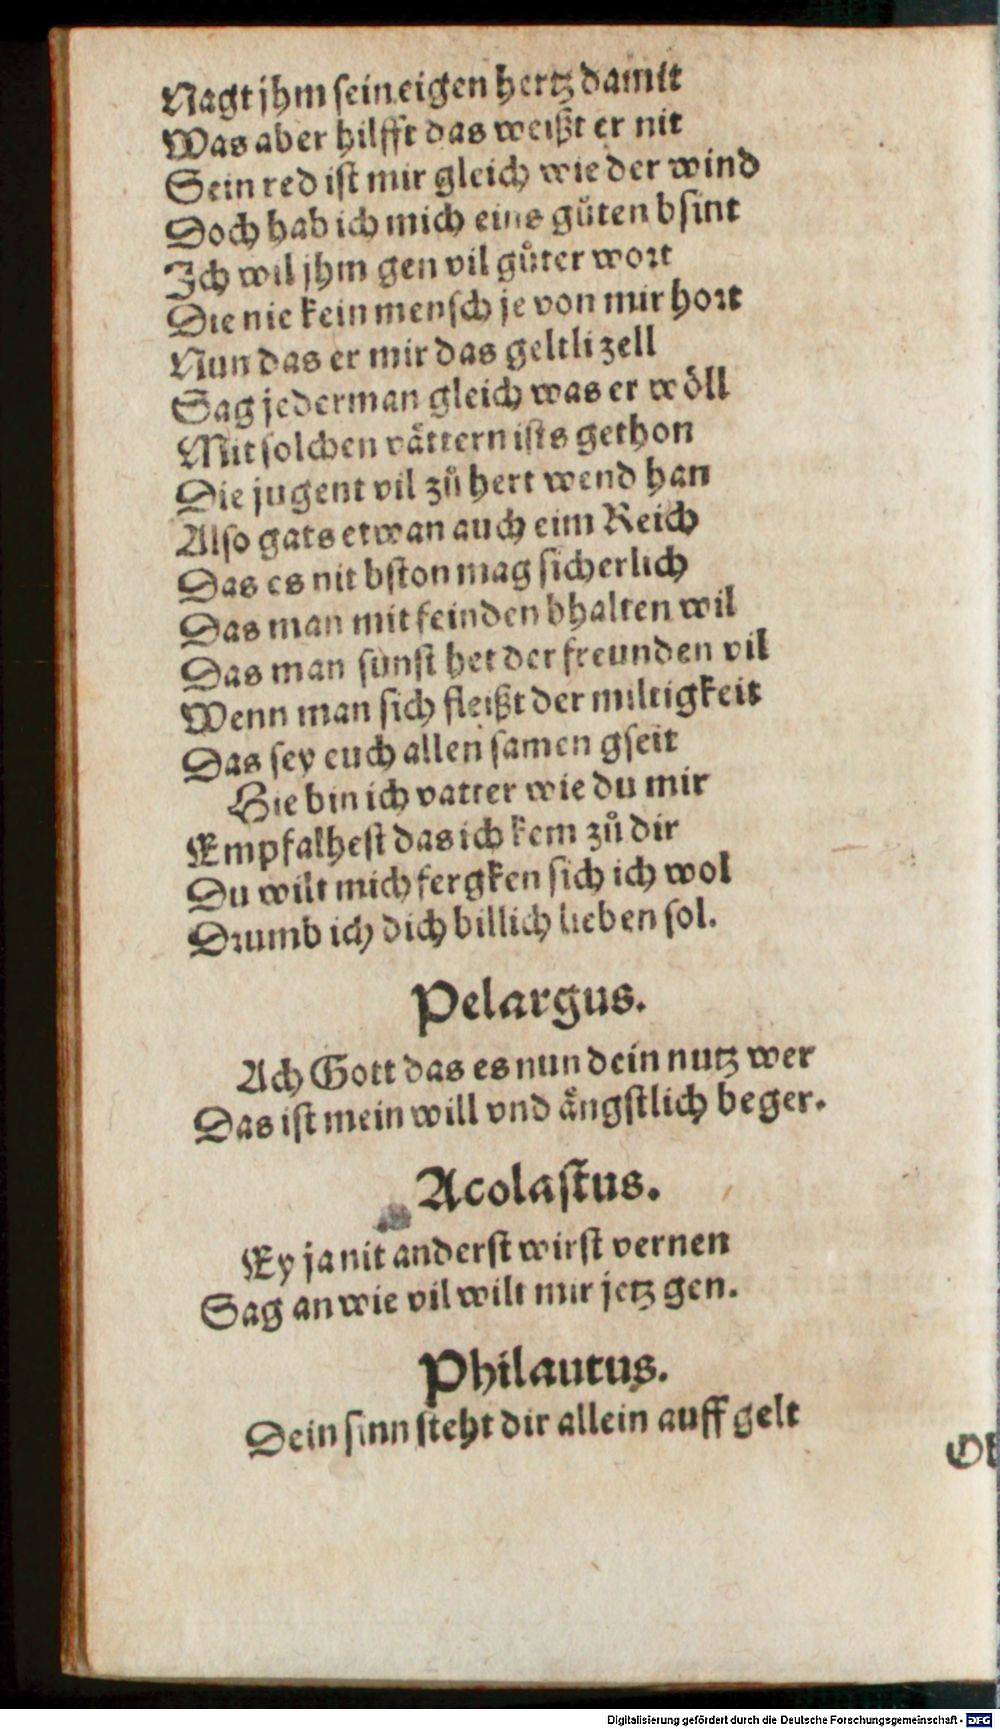 Nagt jhm sein eigen hertz damit
Was aber hilfft das weißt er nit
Sein red ist mir gleich wie der wind
Doch hab ich mich eins gůten bsint
Ich wil jhm gen vil gůter wort
Die nie kein mensch je von mir hort
Nun das er mir das geltli zell
Sag jederman gleich was er wöll
Mit solchen vättern ists gethon
Die jugent vil zů hert wend han
Also gats etwan auch eim Reich
Das es nit bston mag sicherlich
Das man mit feinden bhalten wil
Das man sunst het der freunden vil
Wenn man sich fleißt der miltigkeit
Das sey euch allen samen gseit
Hie bin ich vatter wie du mir
Empfalhest das ich kem zů dir
Du wilt mich fergken sich ich wol
Drumb ich dich billich lieben sol.
Pelargus.
Ach Gott das es nun dein nutz wer
Das ist mein will vnd ängstlich beger.
Acolastus.
Ey ja nit anderst wirst vernen
Sag an wie vil wilt mir jetz gen.
Philautus.
Dein sinn steht dir allein auff gelt
Digitalisierung gefördert durch die Deutsche Forschungsgemeinschaft - DFG